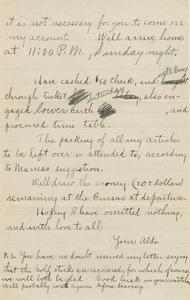 it is not necessary for you to come on
my account. Will arrive home
at 11:00 P.M., Sunday night.
Have cashed $50 check, and will buy
through ticket Saturday, also en-
gaged lower berth, and
procured time table.
The packing of all my articles
to be left over is attended to, according
to Mamas suggestion.
Will draw the money (20+ dollars)
remaining at the Bureau at departure.
Hoping I have omitted nothing,
and with love to all
Your Aldo
P.S. You have no doubt received my letter saying
that the golf sticks are recovered, for which favor
we will both be glad. Good luck in journalism
Will probably write again before leaving.